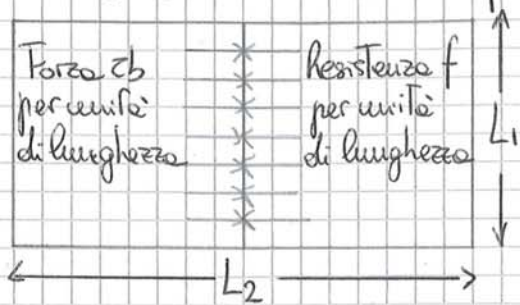 Forza τb
per unità
di lunghezza
Resistenza f
per unità
di lunghezza
L1
L2